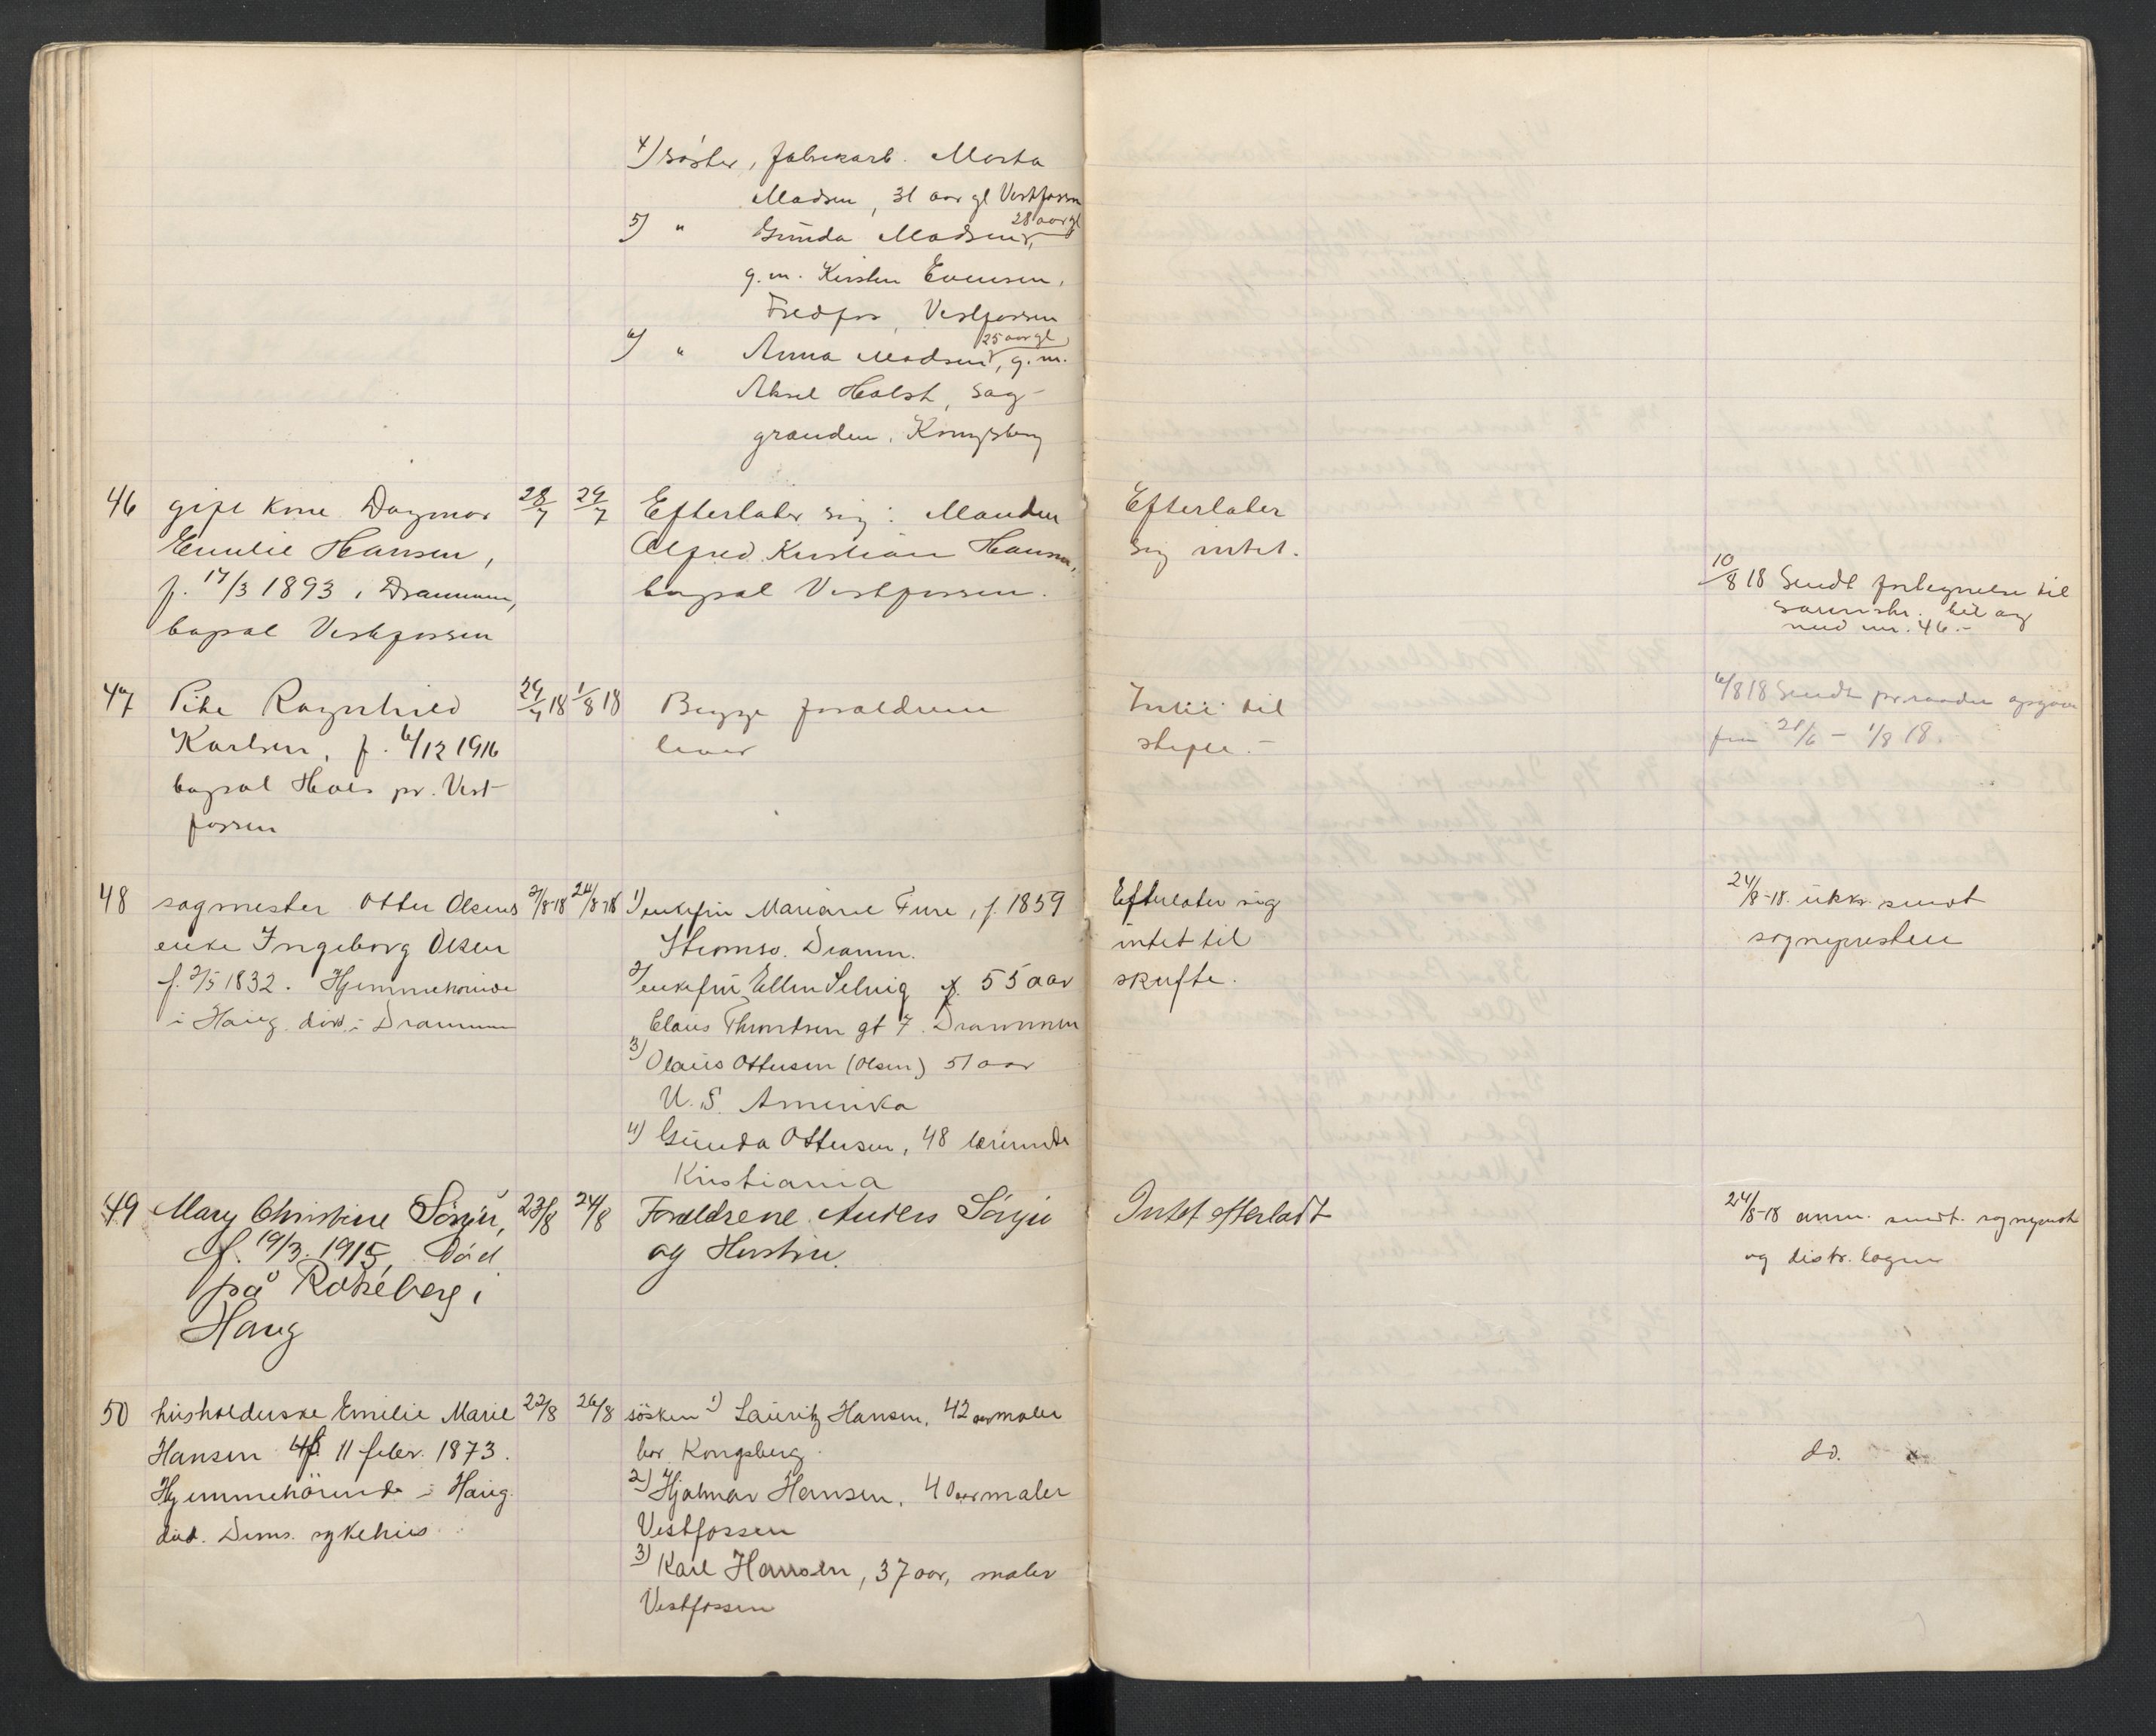 4) søster, fabrikarb. Marta
Madsen, 31 aar gl Vestfossen
5) " Gunda Madsen, 28 aar gl
g. m. Kirsten Evensen,
Fredfos, Vestfossen
6) " Anna Madsen, 25 aar gl, g. m.
Aksel Holst, Sag-
granden, Kongsberg
46 gift kone Dagmar 28/7 29/7 Efterlater sig: Manden Efterlater
Emilie Hansen, Alfred Kristian Hansen, sig intet.
f. 17/3 1893 i Drammen, bopæl Vestfossen. 10/8 18 Sendt fortegnelse til
bopæl Vestfossen sorenskr. bilag
med nr. 46.-
47 Pike Ragnhild 29/7 18 1/8 18 Begge forældrene Intet til 6/8 18 Sendt opgave
Karlsen, f. 6/12 1916 lever skifte.- fra 21/6 - 1/8 18.
bopæl Hals pr. Vest-
fossen
48 sagmester Otter Olsens 2/8-18 24/8-18 1) enkefru Mariane Fure, f. 1859 Efterlater sig 24/8-18. utskr. sendt
enke Ingeborg Olsen Strømsø. Dramm. intet til sognepresten
f. 2/5 1832. Hjemmehørende 2) enkefru Ellen Selvig 55 aar skifte.
i Haug død i Drammen Claus Throndsen gt 7. Drammen
3) Olaus Ottersen (Olsen) 51 aar
U. S. Amerika
4) Gunda Ottersen, 48 lærerinde
Kristiania
49 Mary Christine Sørgju, 23/8 24/8 Forældrene Anders Sørgju Intet efterladt 24/8-18 anm. sendt. sogneprest
f. 19/3. 1915, Død og Hustru. og distr. lægen
på Rokeberg i
Haug
50 husholderske Emilie Marie 22/8 26/8 søsken 1) Lauritz Hansen, 42 aar maler
Hansen f. 11 febr. 1873. bor Kongsberg. do.
Hjemmehørende i Haug. 2) Hjalmar Hansen, 40 aar maler
død. Drms. sykehus. Vestfossen
3) Karl Hansen, 37 aar, maler
Vestfossen